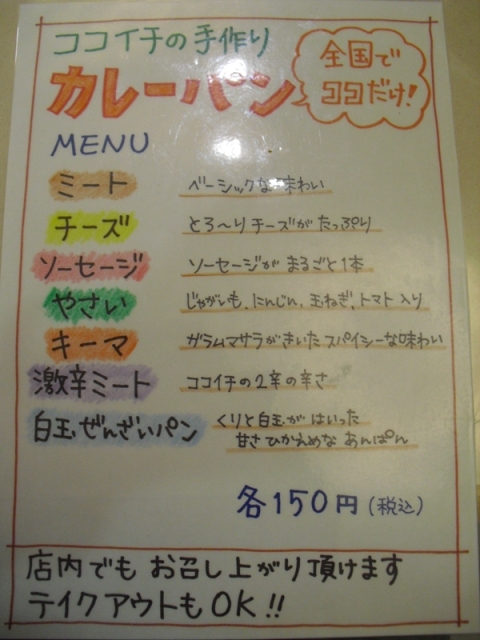 ココイチの手作り
カレーパン
全国で
ココだけ!
MENU
ミート ベーシックな味わい
チーズ とろ〜りチーズが たっぷり
ソーセージ ソーセージが まるごと1本
やさい じゃがいも、にんじん、玉ねぎ、トマト入り
キーマ ガラムマサラがきいた スパイシーな味わい
激辛ミート ココイチの2辛の辛さ
白玉ぜんざいパン くりと白玉が はいった
甘さ ひかえめな あんぱん
各150円(税込)
店内でも お召し上がり頂けます
テイクアウトもOK!!